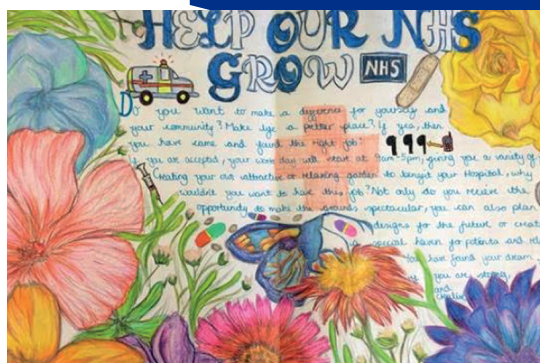 HELP OUR NHS
GROW NHS
Do you want to make a difference for yourself and
your community? Make life a better place? If yes, then
you have came and found the right job!
If you are accepted, your work day will start at 9am-5pm, giving you a variety of
Creating your own attractive or relaxing garden to benefit your Hospital, why
wouldn't you want to have this job? Not only do you receive the
opportunity to make the grounds spectacular, you can also plan
designs for the future or create
a special haven for patients and rel
You have found your dream
if you are strong
and
creative
999